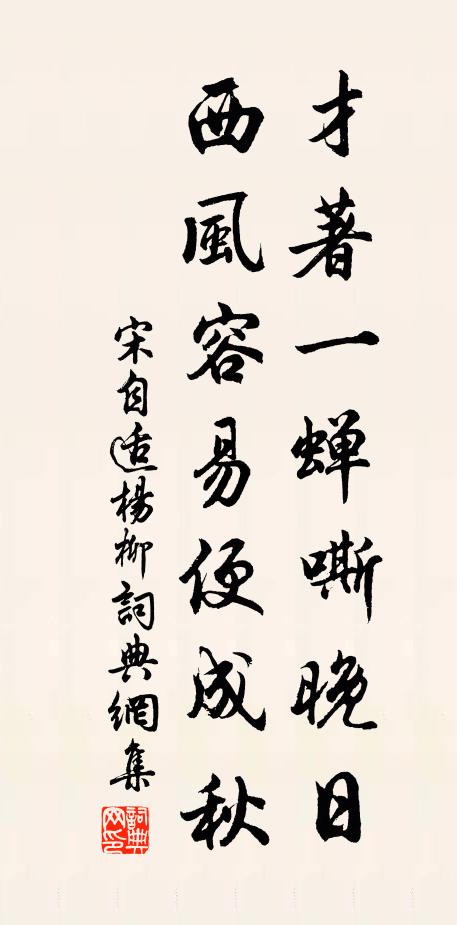 才著一蝉嘶晚日
西風容易便成秋
宋自适楊柳詞典網集
詞典網印